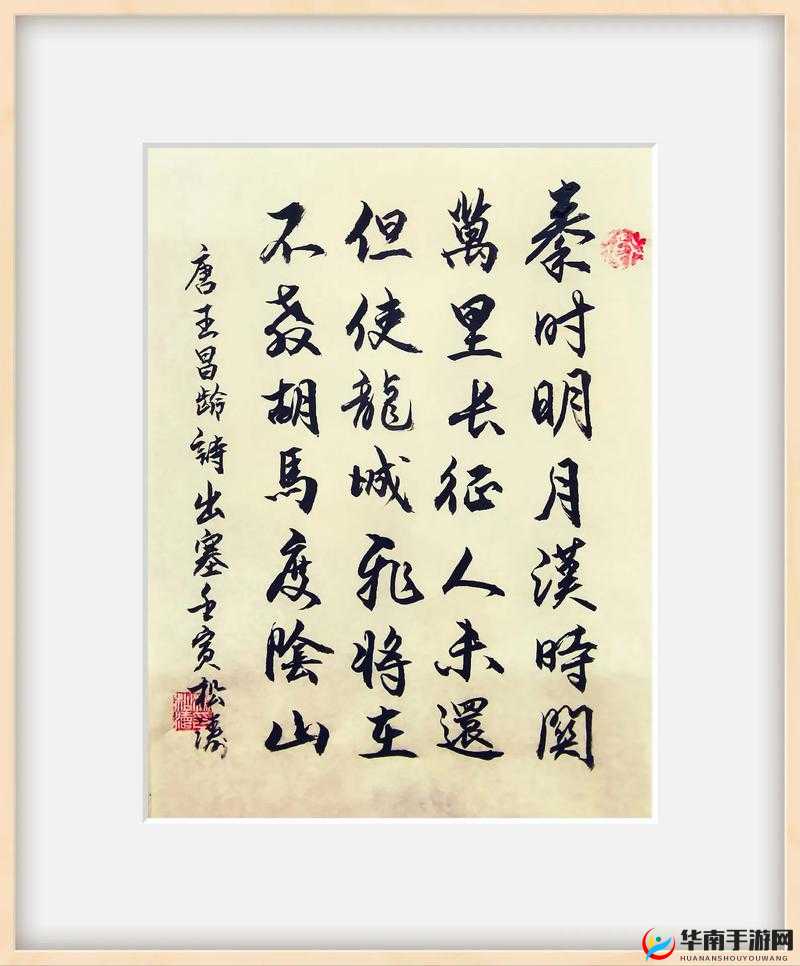 秦时明月漢時関
萬里长征人未還
但使龍城飛将在
不教胡馬度陰山
唐王昌龄詩出塞壬寅松濤
华南手游网
HUANANSHOUYOUWANG